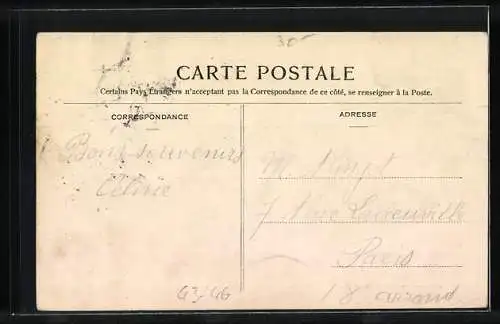 30-
CARTE POSTALE
Certains Pays Étrangers n'acceptant pas la Correspondance de ce côté, se renseigner à la Poste.
CORRESPONDANCE
ADRESSE
Bons souvenirs
Céline
M.
7 Rue
Paris
18
43/46